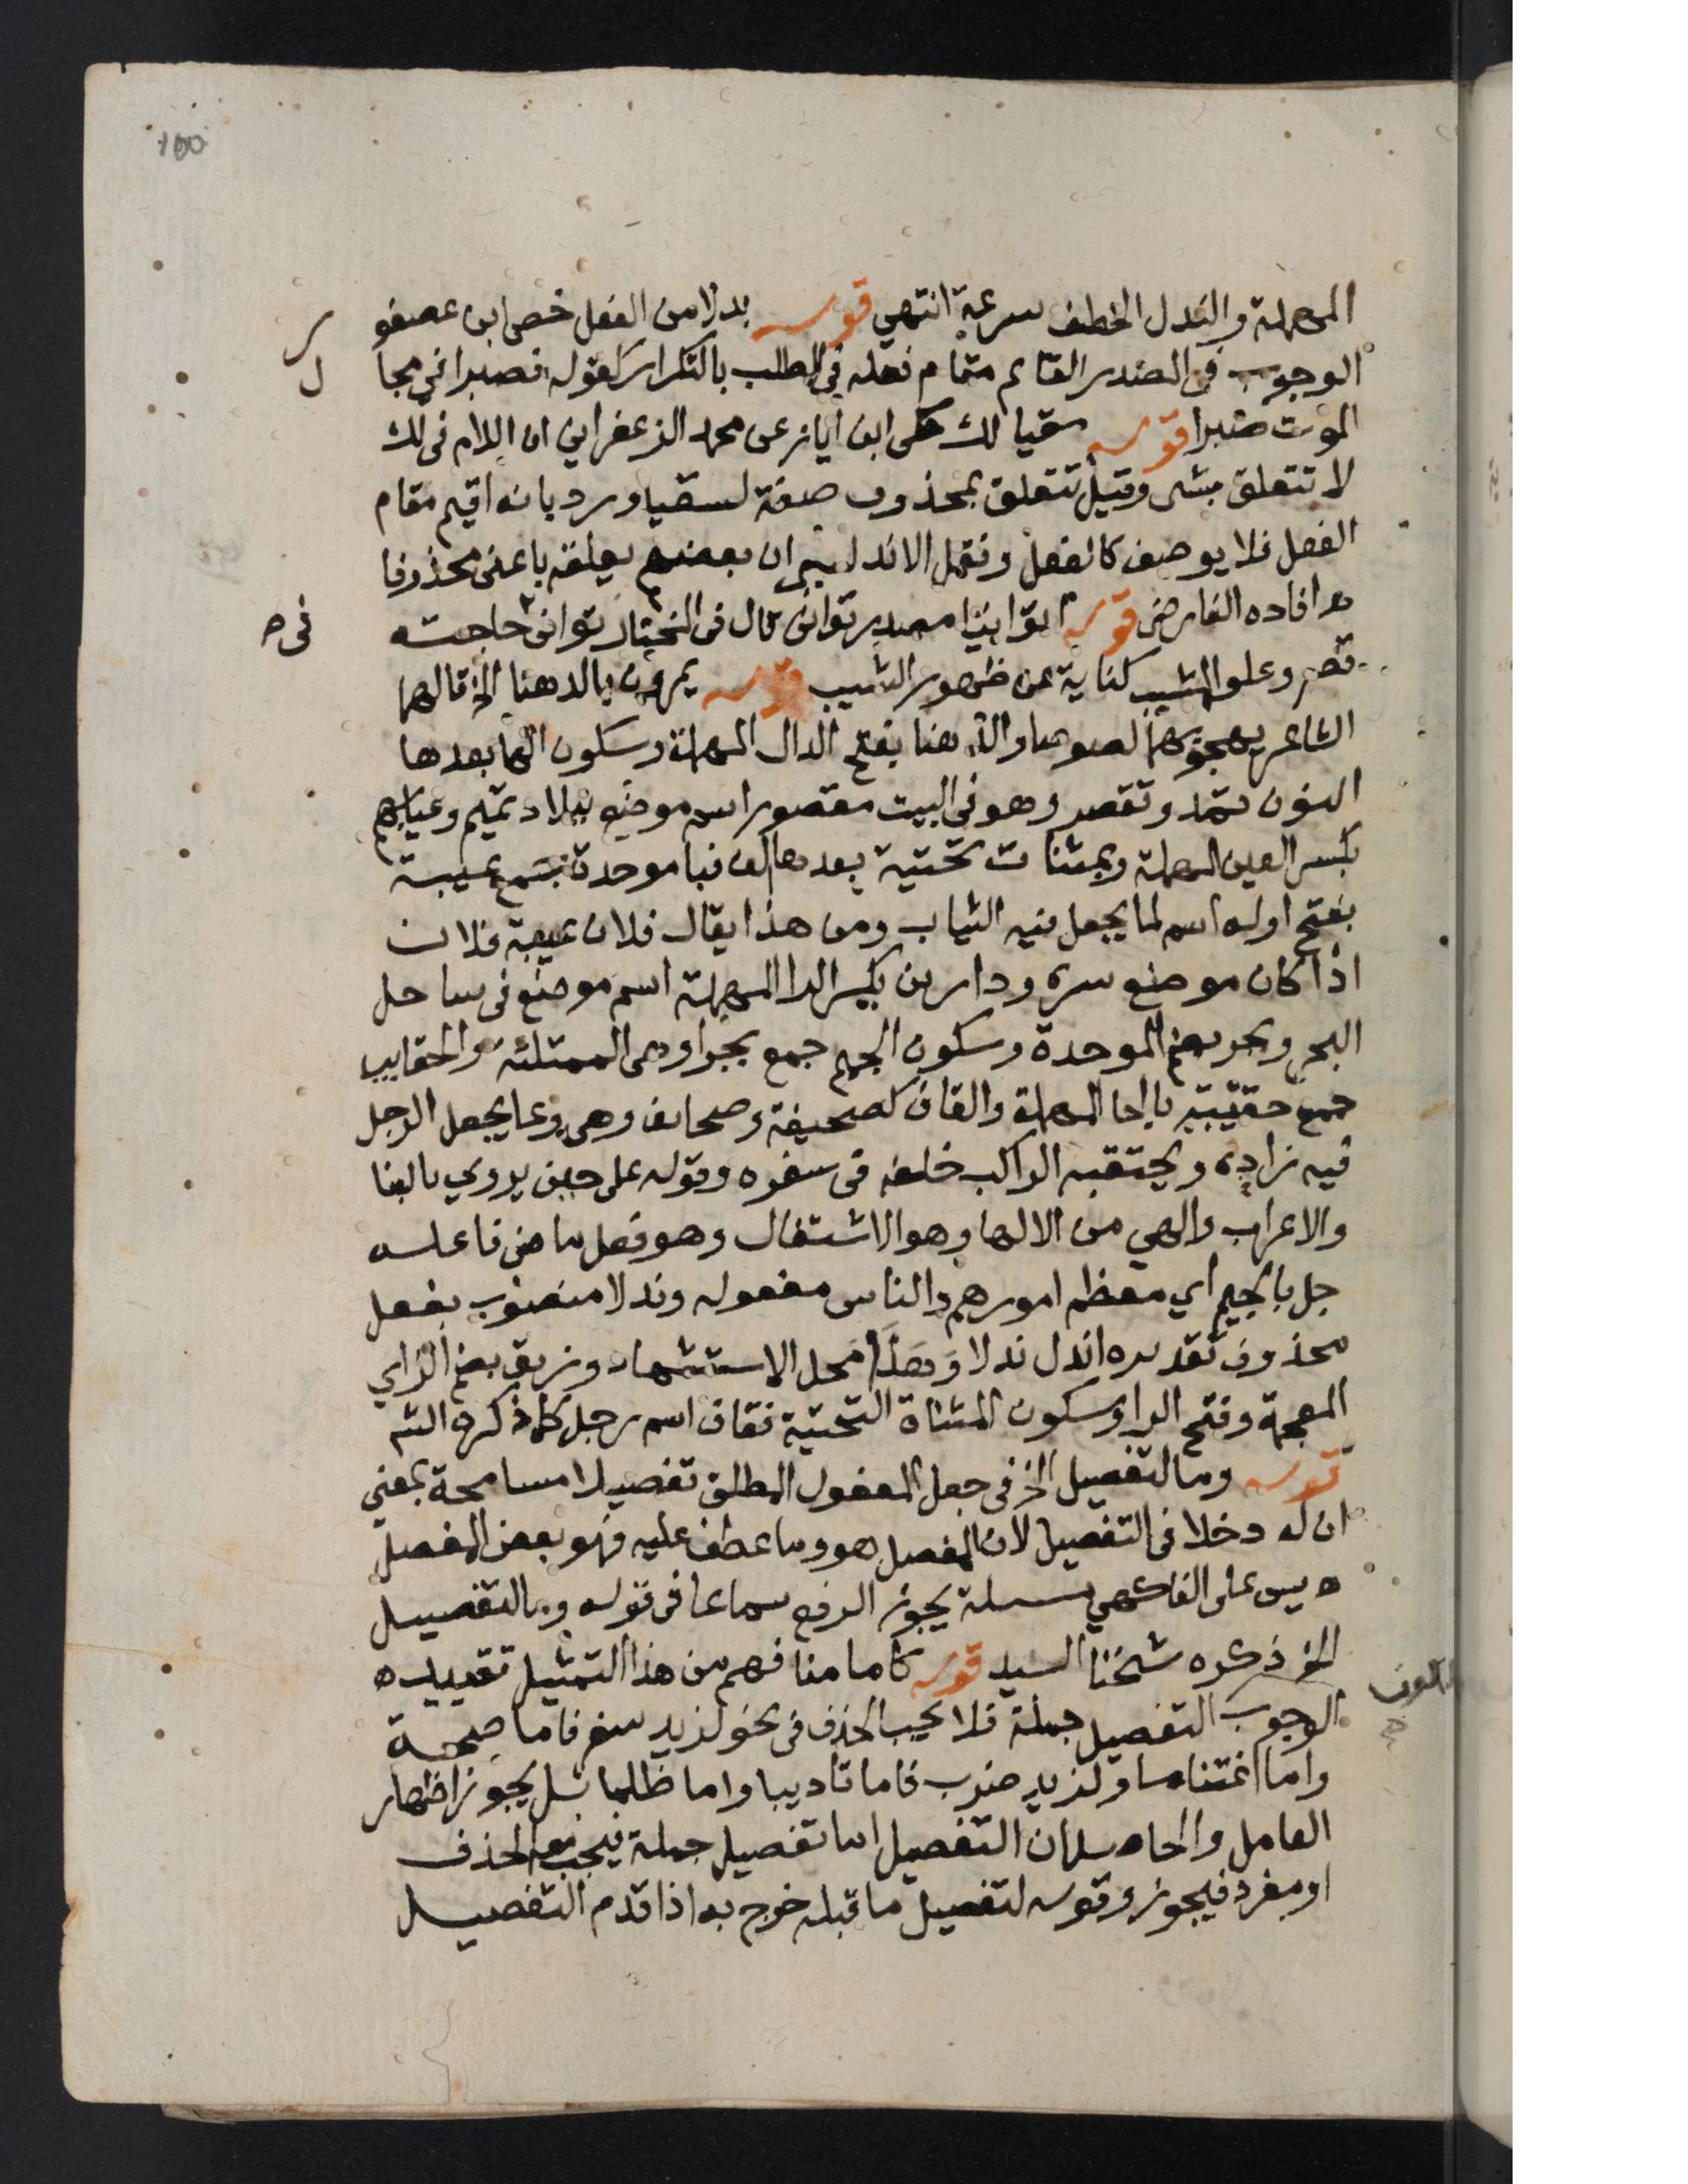 100
المهملة والندل الخطف سرعة انتهي قوله بدلا من الفعل خص ابن عصفو
ر
الوجوب في المصدر القائم مقام فعله في الطلب بالتكرار كقوله فصبرا في مجا
ل
الموت صبرا قوله سقيا لك حكى ابن اياز عن محمد الزعفراني ان اللام في لك
لا تتعلق بشي وقيل تتعلق بمحذوف صفة لسقيا ورد بانه اقيم مقام
الفعل فلا يوصف كالفعل ونقل الاندلسي ان بعضهم يعلقه باعني محذوفا
ه افاده الفارضي قوله اتوانيا مصدر توانى قال في المختار توانى في حاجته
قصر وعلو المشيب كناية عن ظهور الشيب قوله يمرون بالدهنا الخ قالهما
الشاعر يهجو بهما لصوصا والدهنا بفتح الدال المهملة وسكون الها بعدها
النون تمد وتقصر وهو في البيت مقصور اسم موضع ببلاد تميم وعيابهم
بكسر العين المهملة وبمثنات تحتية بعدها الف فبا موحدة جمع عيبة
بفتح اوله اسم لما يجعل فيه الثياب ومن هذا يقال فلان عيبة فلان
اذا كان موضع سره ودارين بكسر الرا المهملة اسم موضع في ساحل
البحر وبجر بضم الموحدة وسكون الجيم جمع بجرا وهي الممتلئة والحقايب
جمع حقيبة بالحا المهملة والقاف كصحيفة وصحايف وهي وعا يجعل الرجل
فيه زاده ويحتقبه الراكب خلفه في سفره وقوله على حين يروي بالبنا
والاعراب والهي من الالها وهو الاشتغال وهو فعل ماض فاعله
جل بالجيم اي معظم امورهم والناس مفعوله وندلا منصوب بفعل
محذوف تقديره اندل ندلا وهذا محل الاستشهاد وزريق بضم الزاي
المعجمة وفتح الرا وسكون المثناة التحتية فقاف اسم رجل كما ذكره الشم
قوله وما لتفصيل الخ في جعل المفعول المطلق تفصيلا مسامحة بمعني
ان له دخلا في التفصيل لان المفصل هو وما عطف عليه فهو بعض المفصل
ه يس على الفاكهي مسئلة يجوز الرفع سماعا في قوله وما لتفصيل
الخ ذكره شيخنا السيد قوله كاما منا فهم من هذا التمثيل تقييده
الوجوب التفصيل جملة فلا يجب الحذف في نحو لزيد سفر فاما صحة
واما اغتناما ولزيد ضرب فاما تاديبا واما ظلما بل يجوز اظهار
العامل والحاصل ان التفصيل اما تفصيل جملة فيجب معه الحذف
او مفرد فيجوز وقوله لتفصيل ما قبله خرج به اذا قدم التفصيل